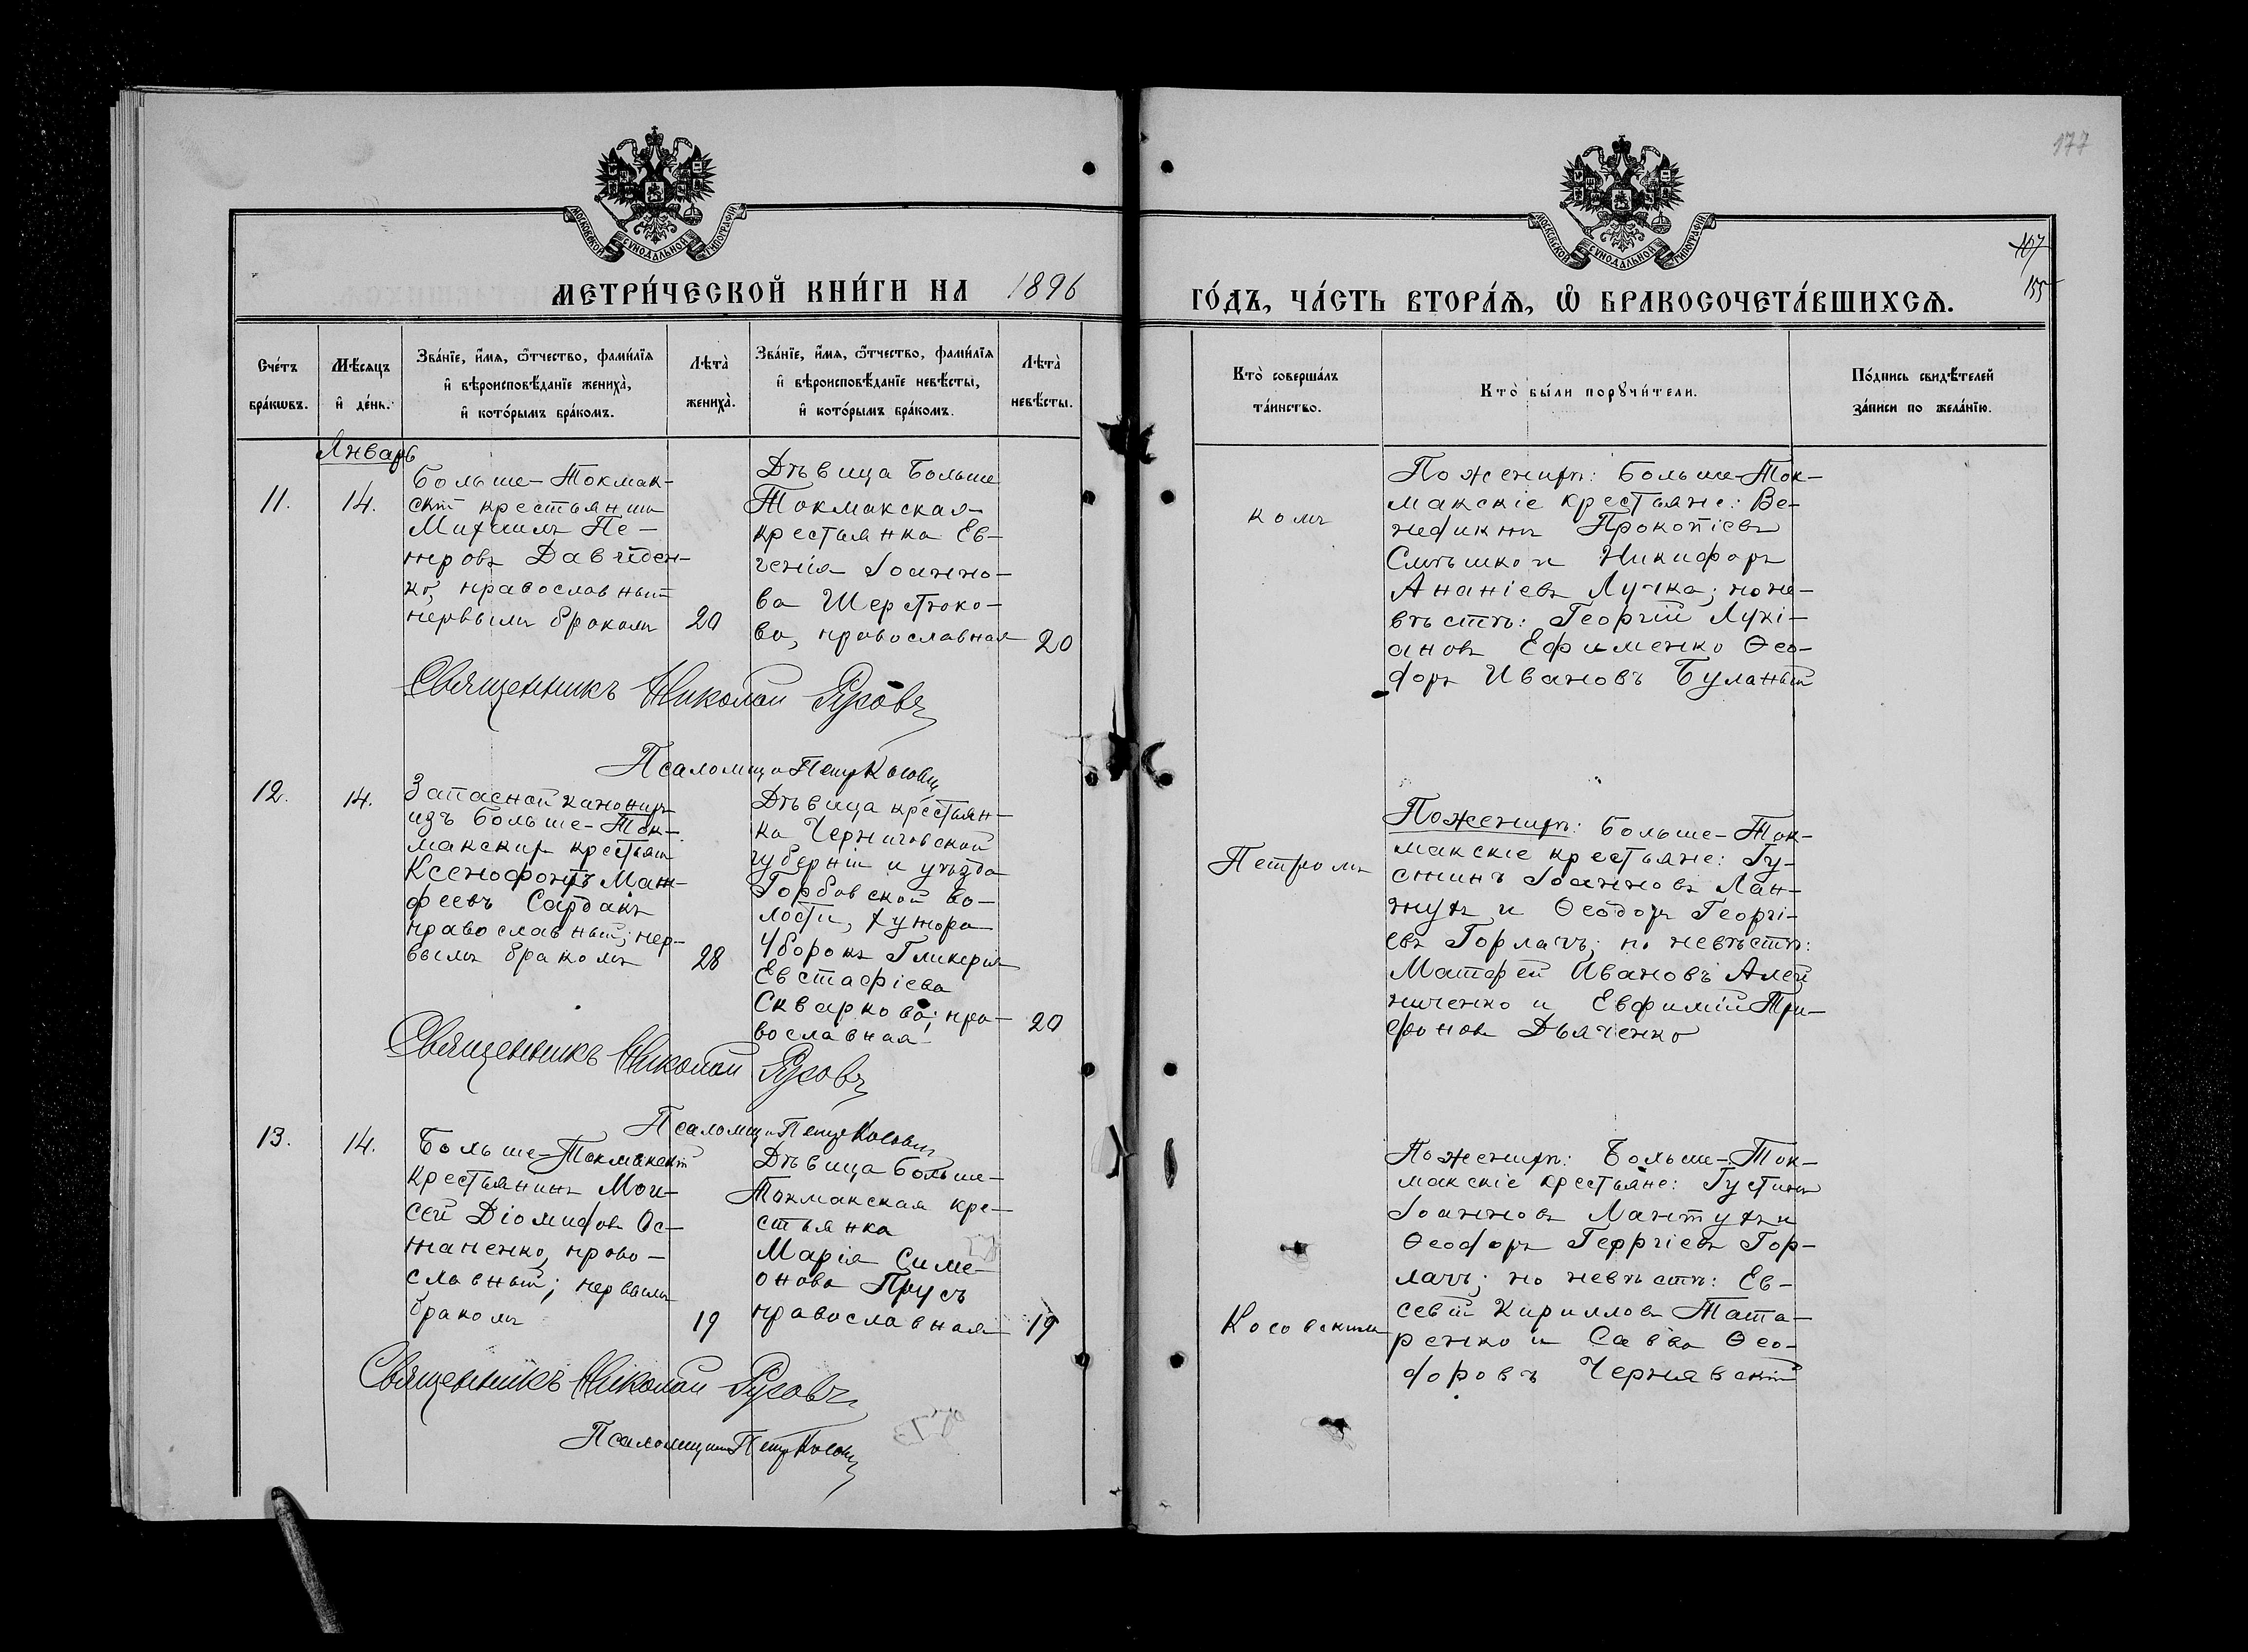 177
МОСКОВСКОЙ СѴНОДАЛЬНОЙ ТИПОГРАФІИ
МОСКОВСКОЙ СѴНОДАЛЬНОЙ ТИПОГРАФІИ
107
155
МЕТРИ́ЧЕСКОЙ КНИ́ГИ НА 1896
ГО́ДЪ, ЧА́СТЬ ВТОРА́Ѧ, Ѡ҆ БРАКОСОЧЕТА́ВШИХСѦ.
Сче́тъ
бра́кѡвъ.
Мѣ́сяцъ
и҆ де́нь.
Зва́нїе, и҆́мѧ, ѻ҆́тчество, фами́лїѧ
и҆ вѣроисповѣ́данїе жениха̀,
и҆ кото́рымъ бра́комъ.
Лѣта̀
жениха̀.
Зва́нїе, и҆́мѧ, ѻ҆́тчество, фами́лїѧ
и҆ вѣроисповѣ́данїе невѣ́сты,
и҆ кото́рымъ бра́комъ.
Лѣта̀
невѣ́сты.
Кто̀ соверша́лъ
та́инство.
Кто̀ бы́ли порꙋчи́тели.
По́дпись свидѣ́телей
за́писи по жела́нїю.
Январь
11.
14.
Больше-Токмак-
скій крестьянинъ
Михаилъ Пе-
тровъ Давиден-
ко, православный
первымъ бракомъ
20
Дѣвица Больше
Токмакская
крестьянка Ев-
генія Іоанно-
ва Шерстюко-
ва, православная
20
комъ
По женихѣ: Больше-Ток-
макскіе крестьяне: Ве-
недиктъ Прокопіевъ
Смѣшко и Никифоръ
Ананіевъ Лучка; по не-
вѣстѣ: Георгій Лукі-
ановъ Ефименко Ѳео-
доръ Ивановъ Буланый
Священникъ Николай Русовъ
Псаломщ. Петръ Косовск
12.
14.
Запасной канониръ
изъ Больше-Ток-
макскихъ крестьянъ
Ксенофонтъ Мат-
феевъ Сардакъ
православный; пер-
вымъ бракомъ
28
Дѣвица крестьян-
ка Черниговской
губерніи и уѣзда
Горбовской во-
лости, хутора
Уборокъ Гликерія
Евстафіева
Скваркова; пра-
вославная
20
Петромъ
По женихѣ: Больше-Ток-
макскіе крестьяне: Гу-
стинъ Іоанновъ Лан-
тухъ и Ѳеодоръ Георгі-
евъ Горлачъ; по невѣстѣ:
Матфей Ивановъ Алей
ниченко и Евфимій Три-
фоновъ Дьяченко
Священникъ Николай Русовъ
Псаломщ. Петръ Косовск
13.
14.
Больше-Токмакскій
крестьянинъ Мои-
сей Діомидовъ Ос-
тапенко, право-
славный; первымъ
бракомъ
19
Дѣвица Больше-
Токмакская кре-
стьянка
Марія Симе-
онова Прусъ
православная
19
Косовскимъ
По женихѣ: Больше-Ток-
макскіе крестьяне: Густинъ
Іоанновъ Лантухъ и
Ѳеодоръ Георгіевъ Гор-
лачъ; по невѣстѣ: Ев-
севій Кирилловъ Тата-
ренко и Савва Ѳео-
доровъ Чернявскій
Священникъ Николай Русовъ
Псаломщикъ Петръ Косовск